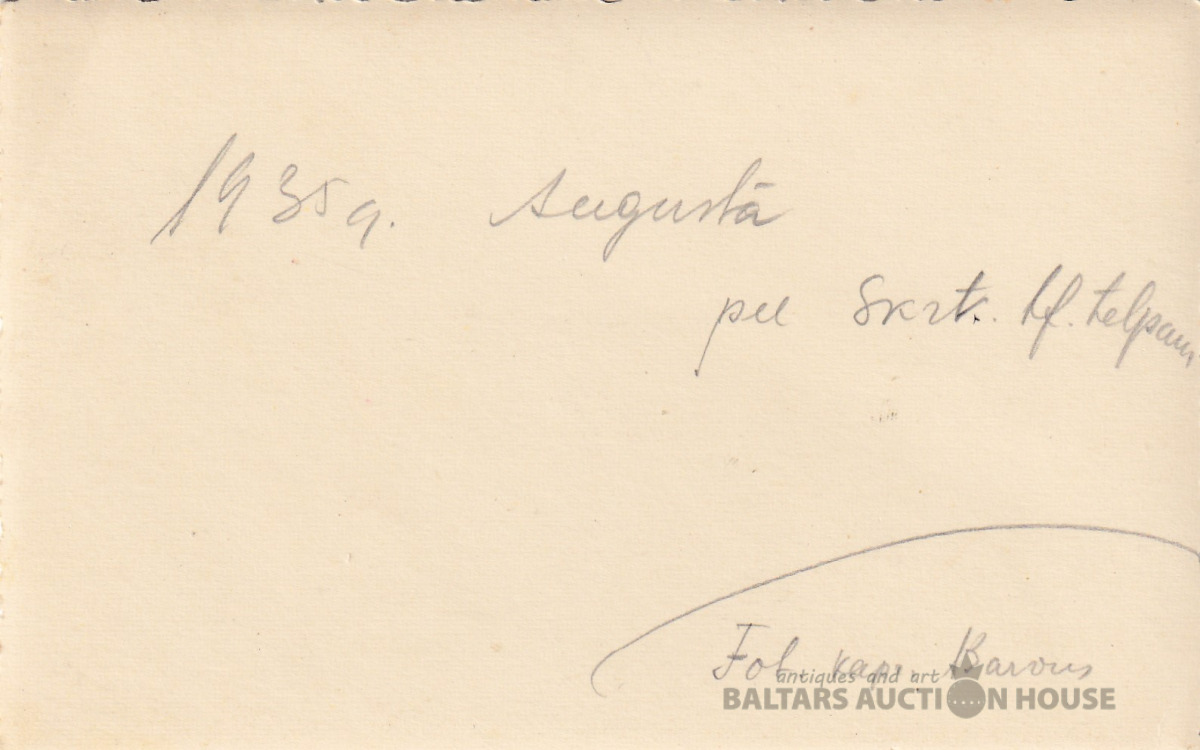 1935 g. Augustā
pee Skrt. Kl. telpam
Fot. kap. Barons
antiques and art
BALTARS AUCTION HOUSE